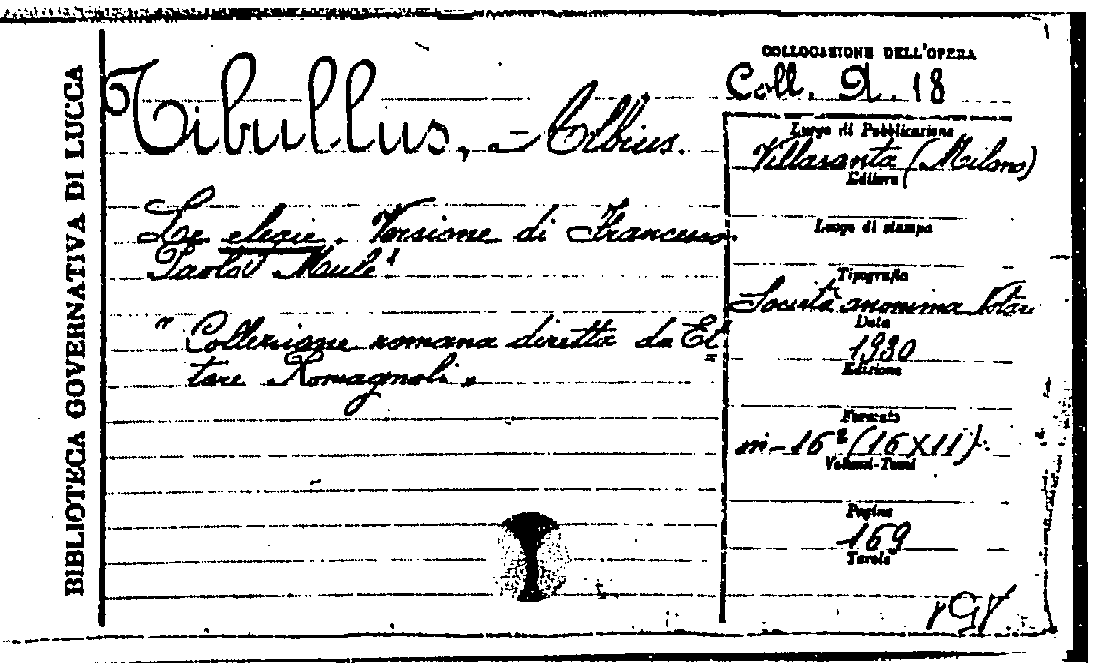 BIBLIOTECA GOVERNATIVA DI LUCCA
Tibullus, - Albius.
Le elegie. Versione di Francesco
Paolo Mulè
"Collezione romana diretta da Et=
tore Romagnoli"
COLLOCAZIONE DELL'OPERA
Coll. A. 18
Luogo di Pubblicazione
Villasanta (Milano)
Editore
Luogo di stampa
Tipografia
Società anonima Notari
Data
1930
Edizione
Formato
in-16º (16X11).
Volumi-Tomi
Pagine
169
Tavole